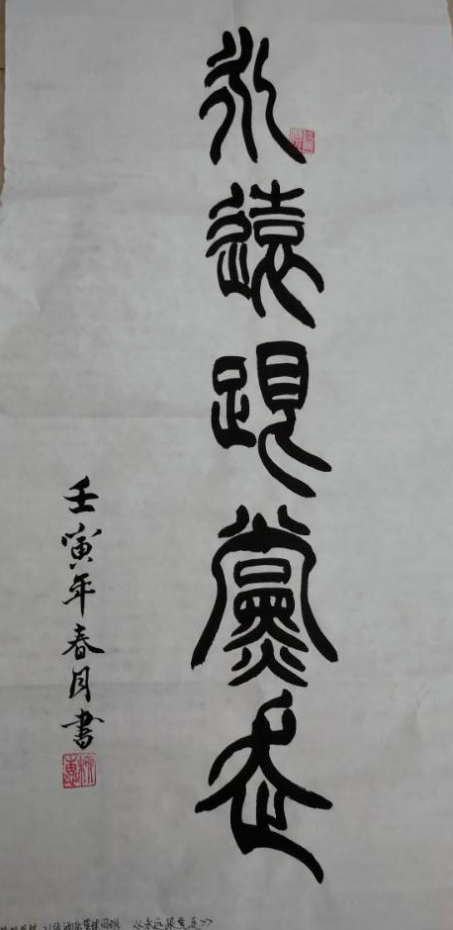 永遠跟黨走
壬寅年春月書
《永远跟党走》